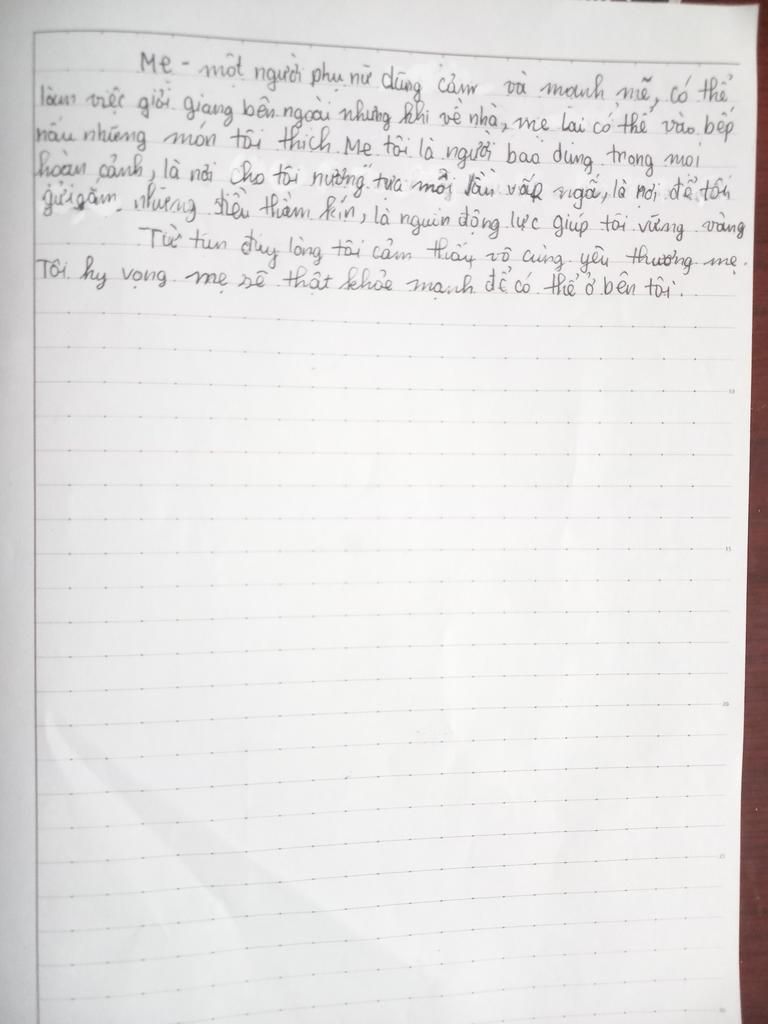 Mẹ - một người phụ nữ dũng cảm và mạnh mẽ, có thể
làm việc giỏi giang bên ngoài nhưng khi về nhà, mẹ lại có thể vào bếp
nấu những món tôi thích. Mẹ tôi là người bao dung trong mọi
hoàn cảnh, là nơi cho tôi nương tựa mỗi lần vấp ngã, là nơi để tôi
gửi gắm những điều thầm kín, là nguồn động lực giúp tôi vững vàng
Từ tận đáy lòng tôi cảm thấy vô cùng yêu thương mẹ.
Tôi hy vọng mẹ sẽ thật khỏe mạnh để có thể ở bên tôi.
10
15
20
25
30